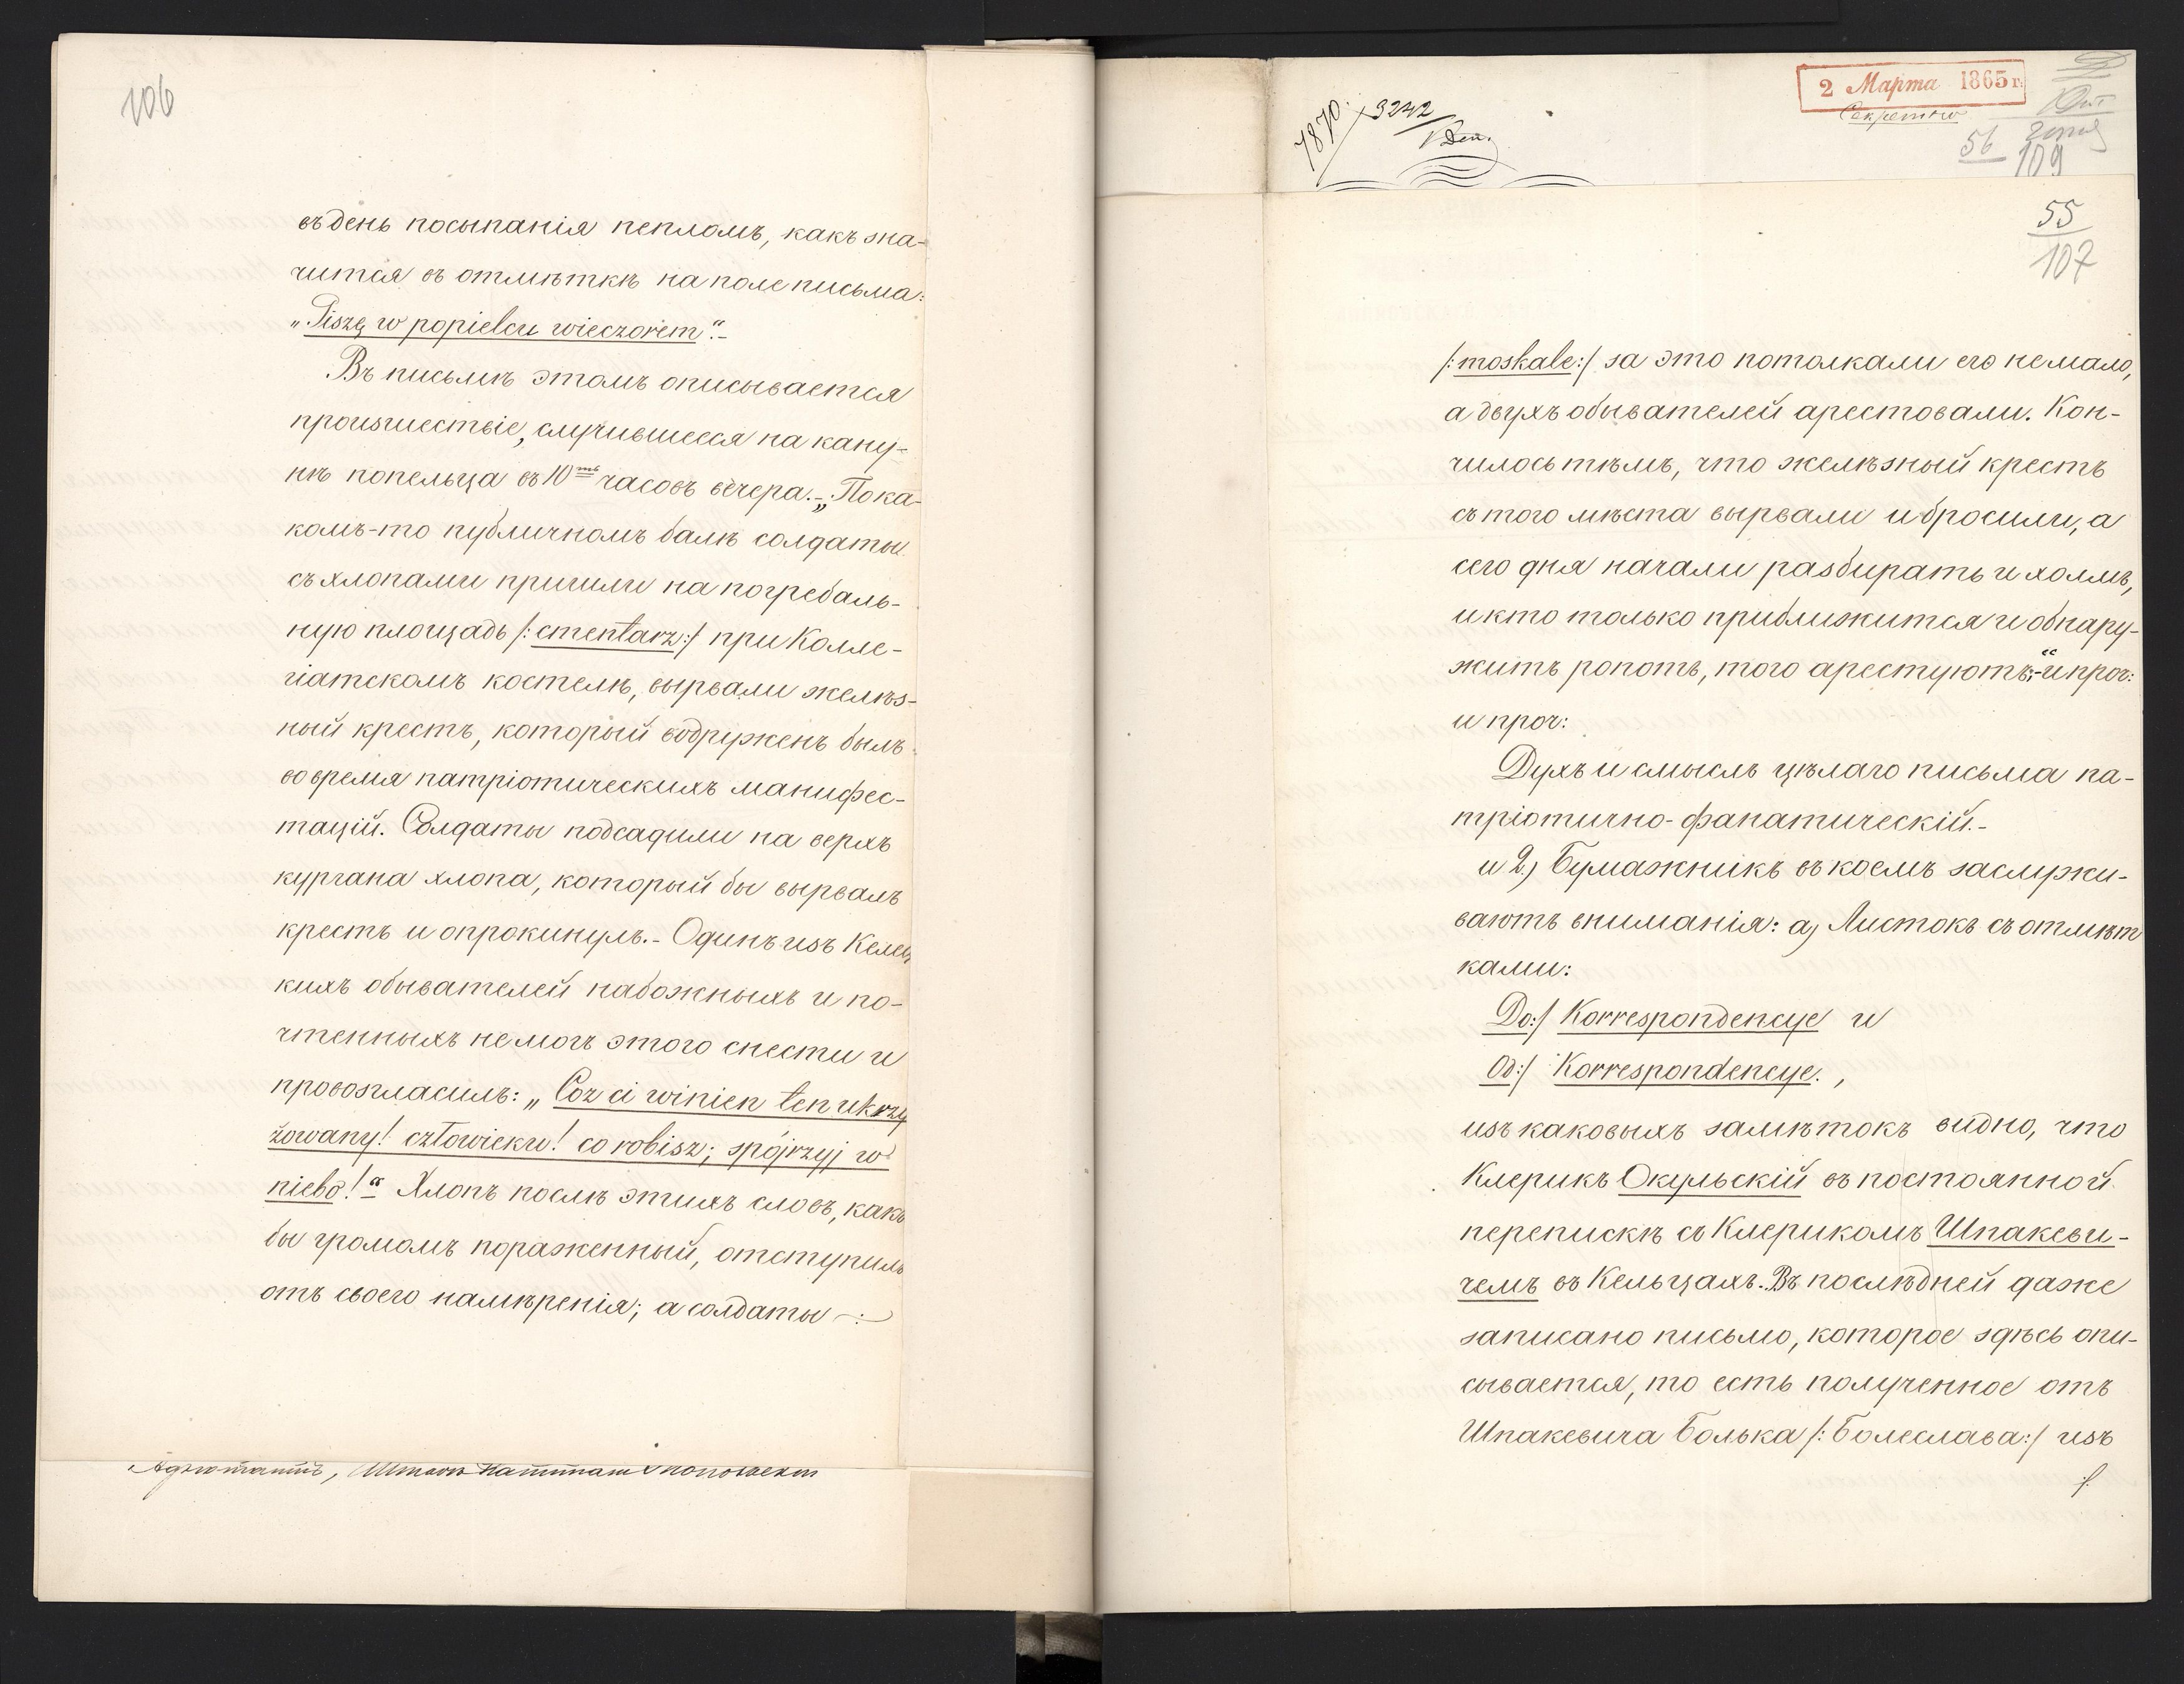 106
въ день посыпанія пепломъ, какъ зна-
чится въ отмѣткѣ на поле письма:
„Piszę w popielcu wieczorem“.-
Въ письмѣ этомъ описывается
происшествіе, случившееся на кану-
нѣ попельца въ 10ть часовъ вечера.- „По ка-
комъ-то публичномъ балѣ солдаты
съ хлопами пришли на погребаль-
ную площадь /:cmentarz:/ при Колле-
гіатскомъ костелѣ, вырвали желѣз-
ный крестъ, который водруженъ былъ
во время патріотическихъ манифес-
тацій. Солдаты подсадили на верхъ
кургана хлопа, который бы вырвалъ
крестъ и опрокинулъ.- Одинъ изъ Келец-
кихъ обывателей набожныхъ и по-
чтенныхъ не могъ этого снести и
провозгласилъ: „Coz ci winien ten ukrzy
żowany! człowieku! co robisz; spójrzyj w
niebo!“ Хлопъ послѣ этихъ словъ, какъ
бы громомъ пораженный, отступилъ
отъ своего намѣренія; а солдаты
Адъютантъ, Штабсъ Капитанъ
1870.
3242
2 Марта 1865 г.
Секретно
56
109
55
107
/:moskale:/ за это потолкали его немало,
а двухъ обывателей арестовали. Кон-
чилось тѣмъ, что желѣзный крестъ
съ того мѣста вырвали и бросили, а
сего дня начали разбирать и холмъ,
и кто только приближится и обнару-
житъ ропотъ, того арестуютъ;-“ и проч:
и проч:
Духъ и смыслъ цѣлаго письма па-
тріотично-фанатическій.-
и 2) Бумажникъ въ коемъ заслужи-
ваютъ вниманія: а) Листокъ съ отмѣт
ками:
Do:/ Korrespondencye и
Od:/ Korrespondencye.,
изъ каковыхъ замѣтокъ видно, что
Клерикъ Окульскій въ постоянной
перепискѣ съ Клерикомъ Шпакеви-
чемъ въ Кельцахъ. Въ послѣдней даже
записано письмо, которое здѣсь опи-
сывается, то есть полученное отъ
Шпакевича Болька /:Болеслава:/ изъ